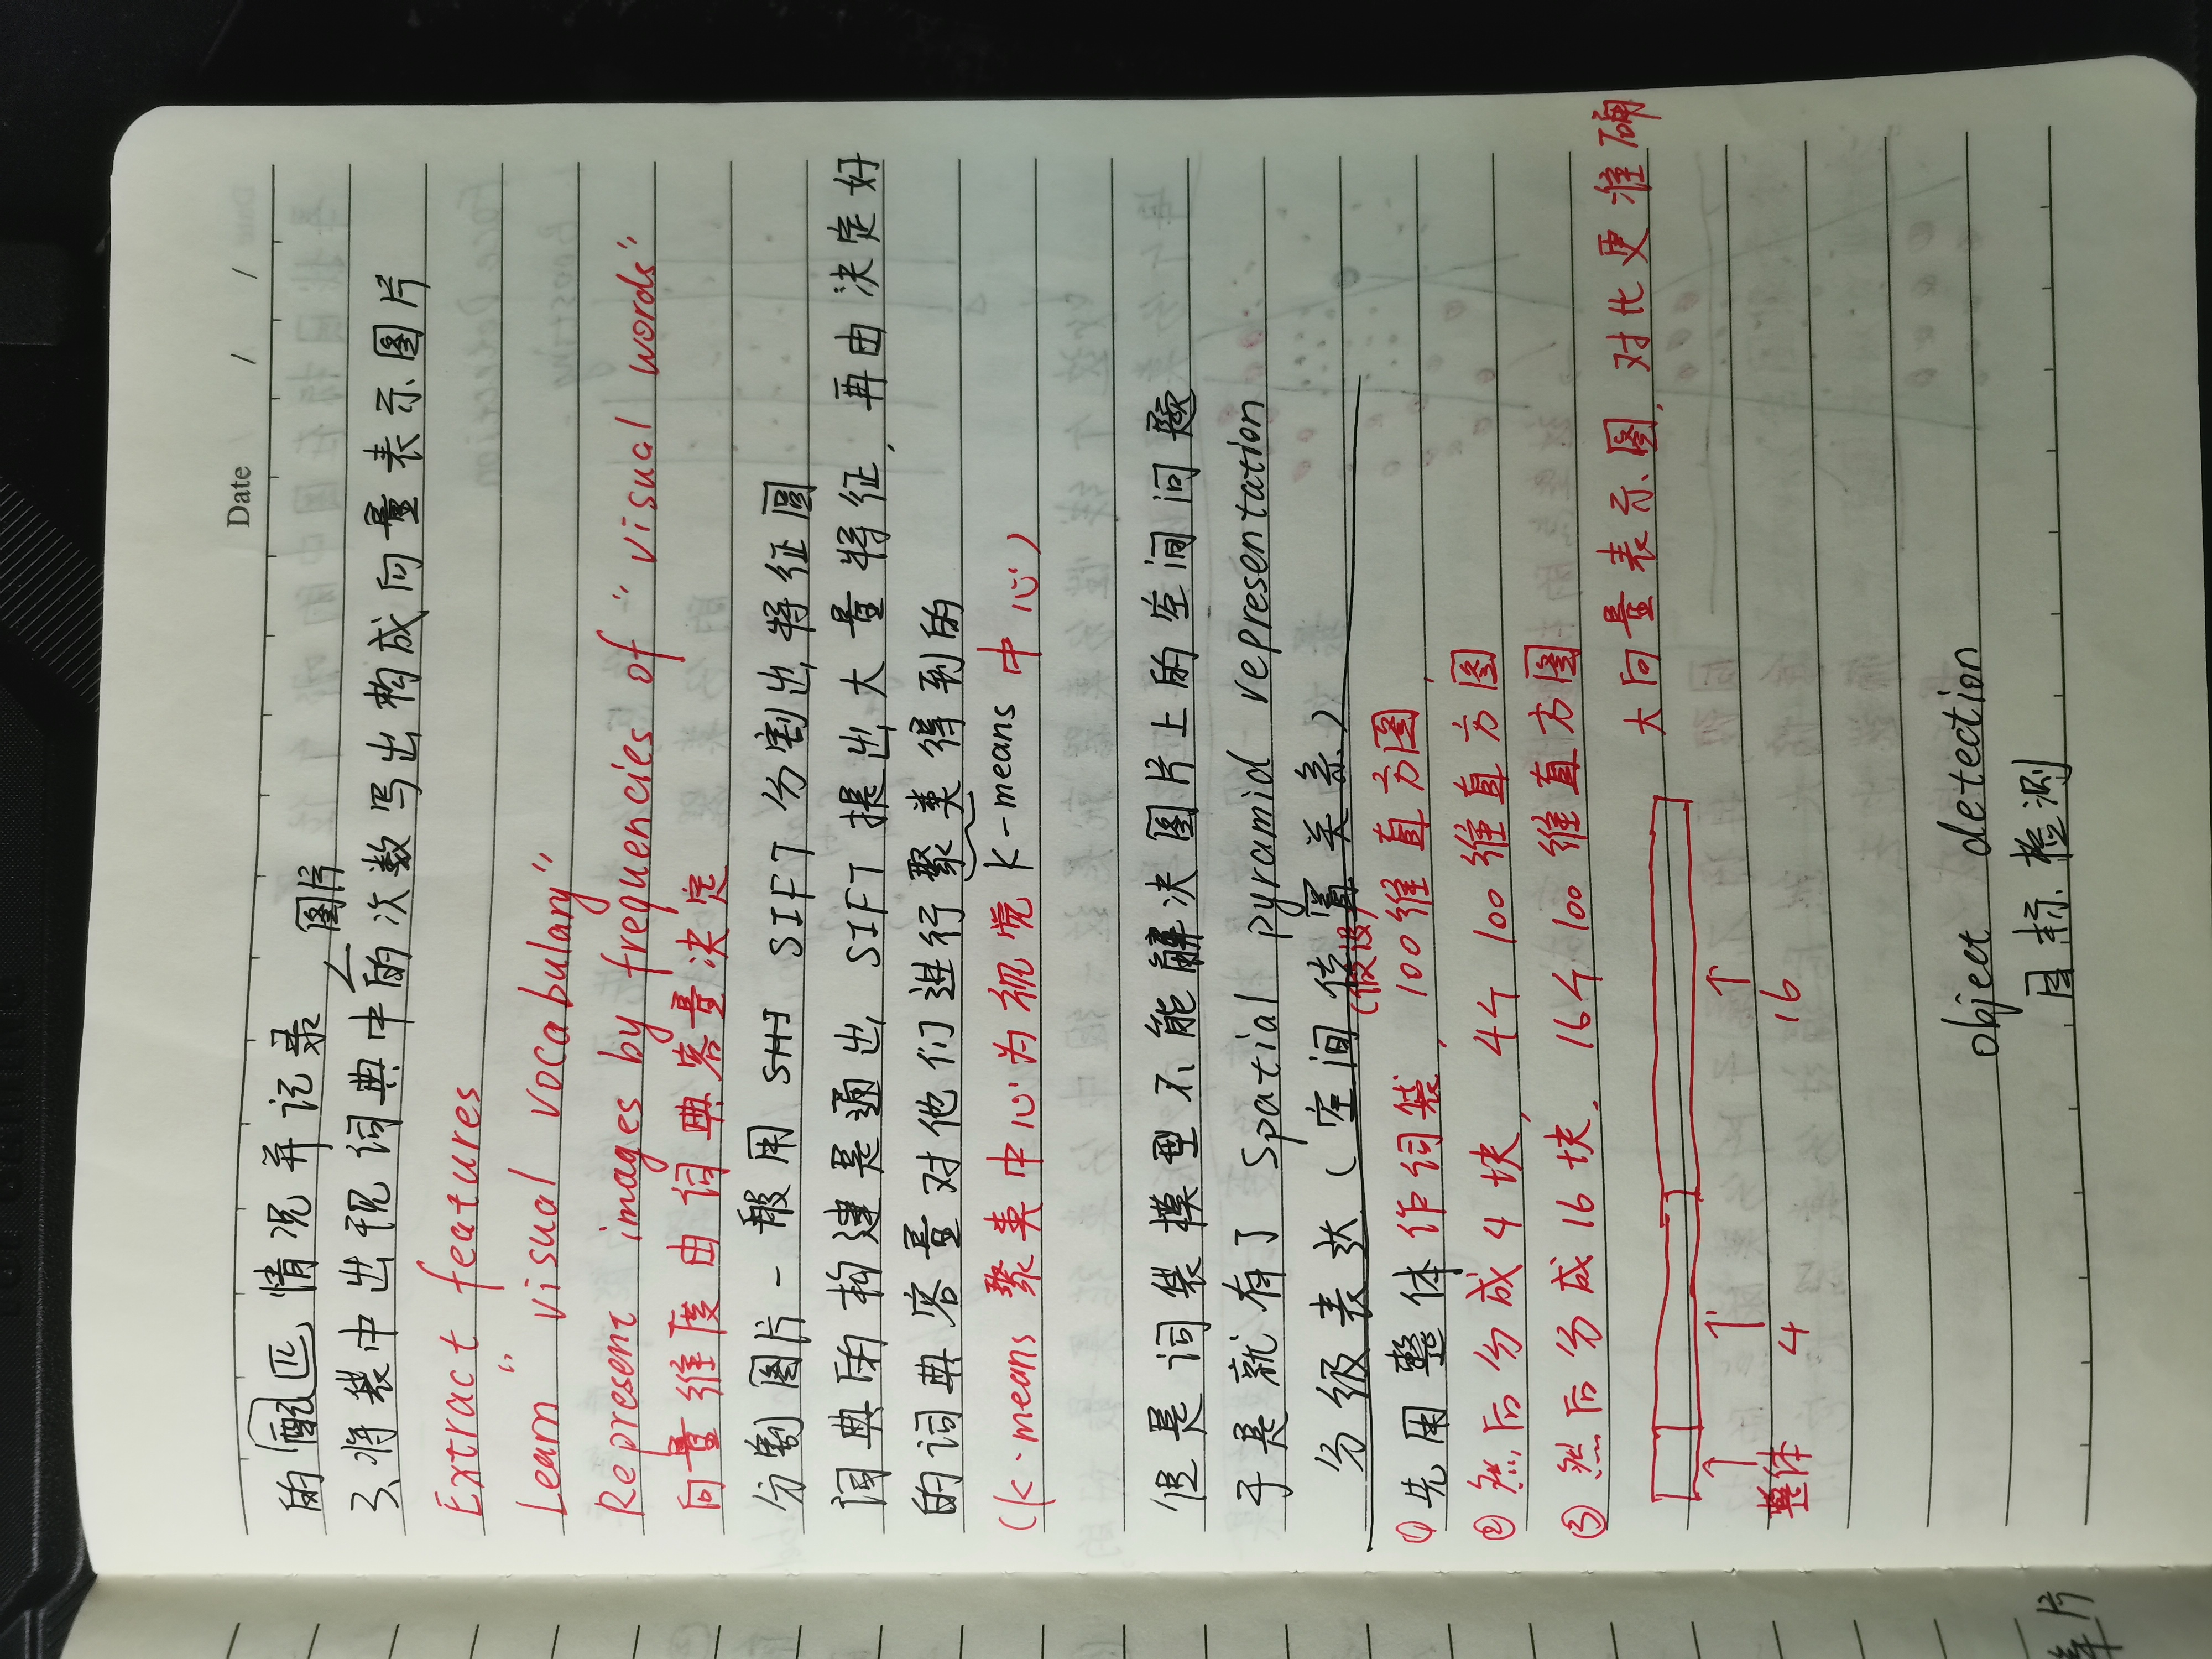 Date / /
的配匹情况并记录
图片
3、将袋中出现词典中的次数写出构成向量表示图片
Extract features
Learn "visual vocabulary"
Represent images by frequencies of "visual words"
向量维度由词典容量决定
分割图片一般用 SIFT 分割出特征圆
词典的构建是通过 SIFT 提出大量特征,再由决定好
的词典容量对他们进行聚类得到的
K-means
(k-means 聚类中心为视觉中心)
但是词袋模型不能解决图片上的空间问题
于是就有了 Spatial pyramid representation
分级表达(空间位置关系)
(假设)
① 先用整体作词袋,100维直方图,
② 然后分成4块,4个100维直方图
③ 然后分成16块.16个100维直方图
大向量表示图,对比更准确
整体 4 16
object detection
目标检测